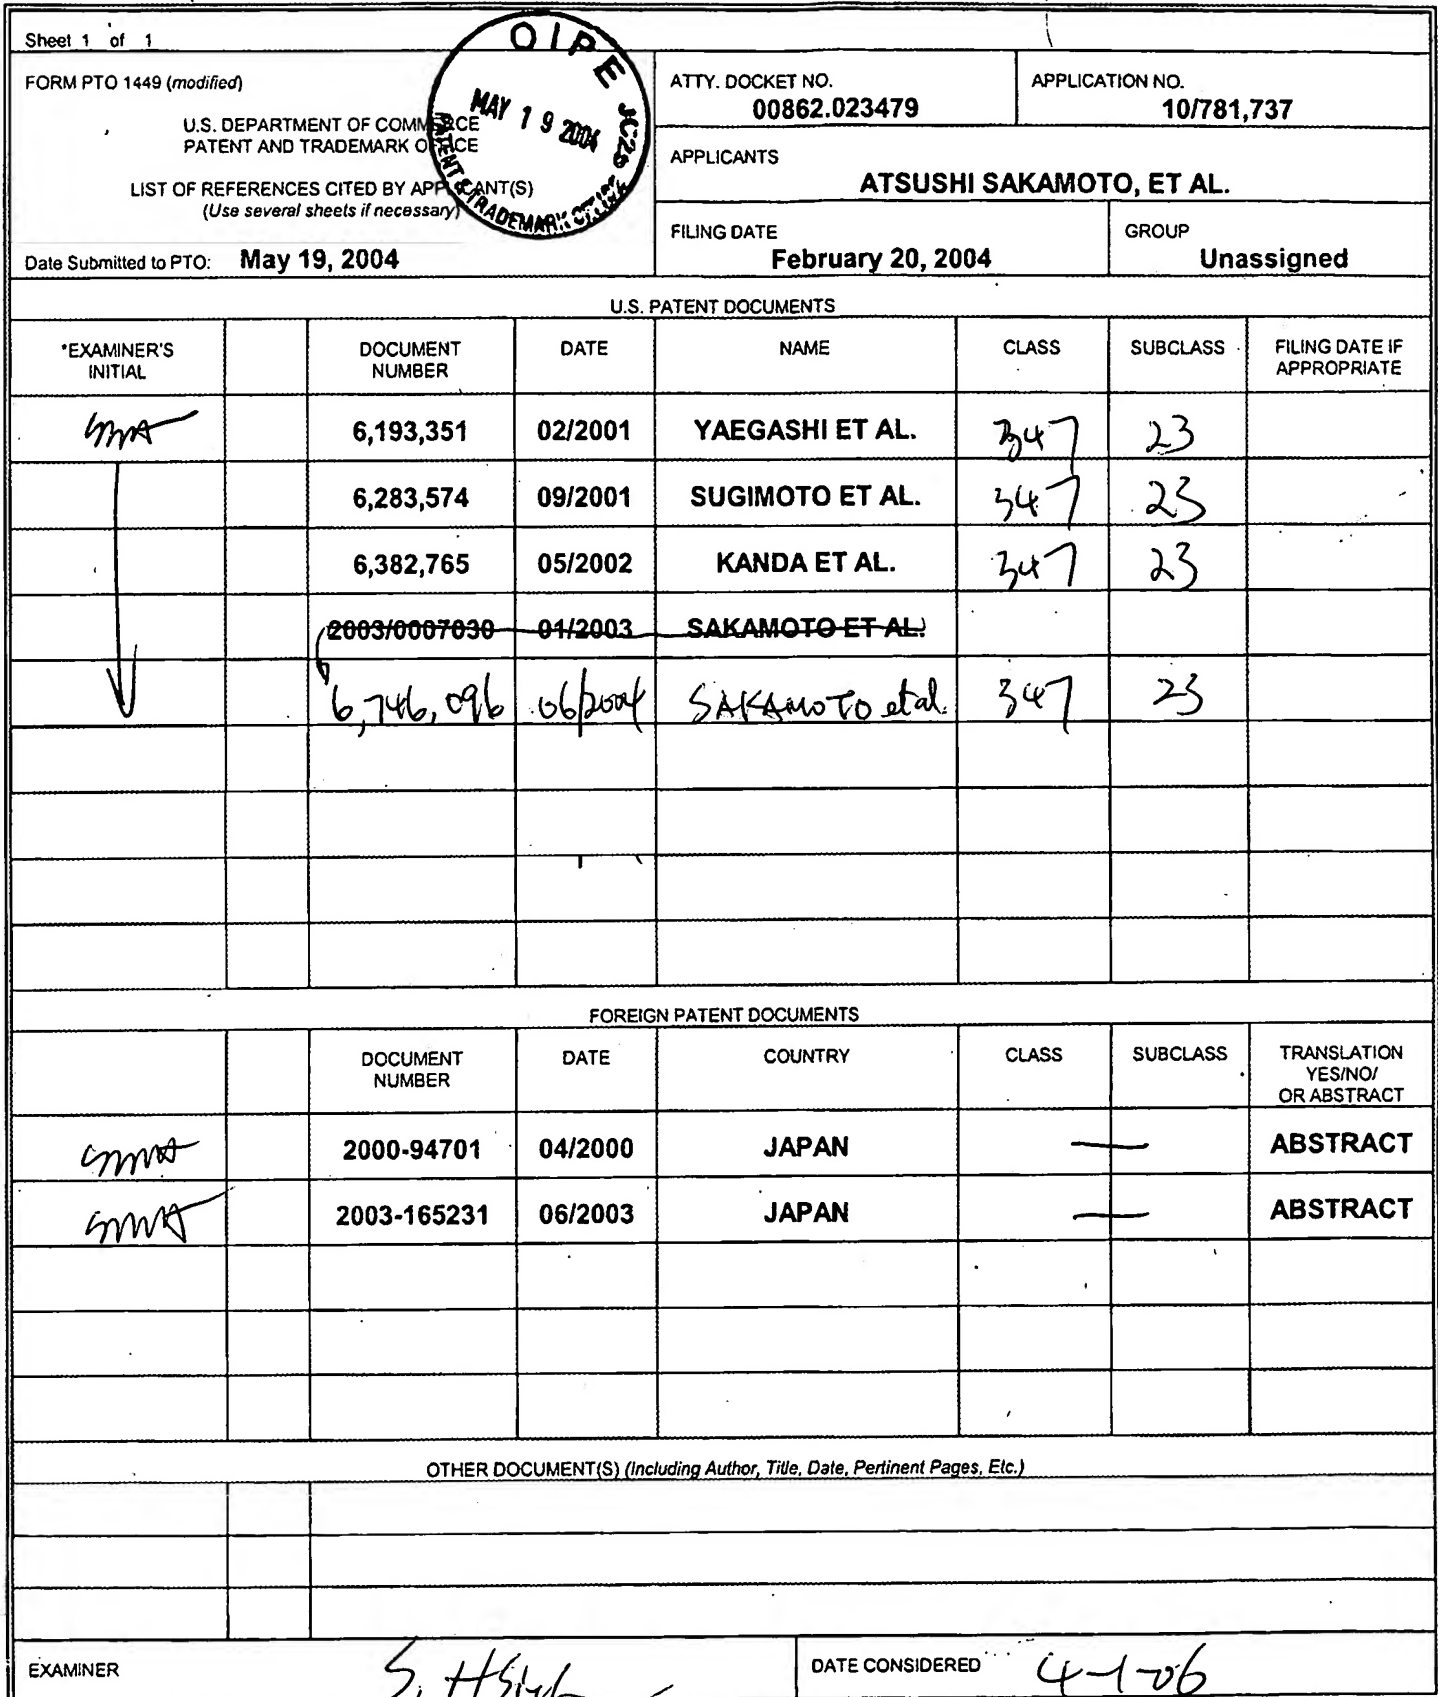 Sheet 1 of 1
FORM PTO 1449 (modified)
U.S. DEPARTMENT OF COMMERCE
PATENT AND TRADEMARK OFFICE
LIST OF REFERENCES CITED BY APPLICANT(S)
(Use several sheets if necessary)
Date Submitted to PTO: May 19, 2004
OIPE JC25
MAY 19 2004
PATENT & TRADEMARK OFFICE
ATTY. DOCKET NO.
00862.023479
APPLICATION NO.
10/781,737
APPLICANTS
ATSUSHI SAKAMOTO, ET AL.
FILING DATE
February 20, 2004
GROUP
Unassigned
U.S. PATENT DOCUMENTS
*EXAMINER'S INITIAL DOCUMENT NUMBER DATE NAME CLASS SUBCLASS FILING DATE IF APPROPRIATE
6,193,351 02/2001 YAEGASHI ET AL. 347 23
6,283,574 09/2001 SUGIMOTO ET AL. 347 23
6,382,765 05/2002 KANDA ET AL. 347 23
2003/0007030 01/2003 SAKAMOTO ET AL.
6,746,096 06/2004 SAKAMOTO et al. 347 23
FOREIGN PATENT DOCUMENTS
DOCUMENT NUMBER DATE COUNTRY CLASS SUBCLASS TRANSLATION YES/NO/ OR ABSTRACT
2000-94701 04/2000 JAPAN — ABSTRACT
2003-165231 06/2003 JAPAN — ABSTRACT
OTHER DOCUMENT(S) (Including Author, Title, Date, Pertinent Pages, Etc.)
EXAMINER S. Hsieh
DATE CONSIDERED 4-1-06